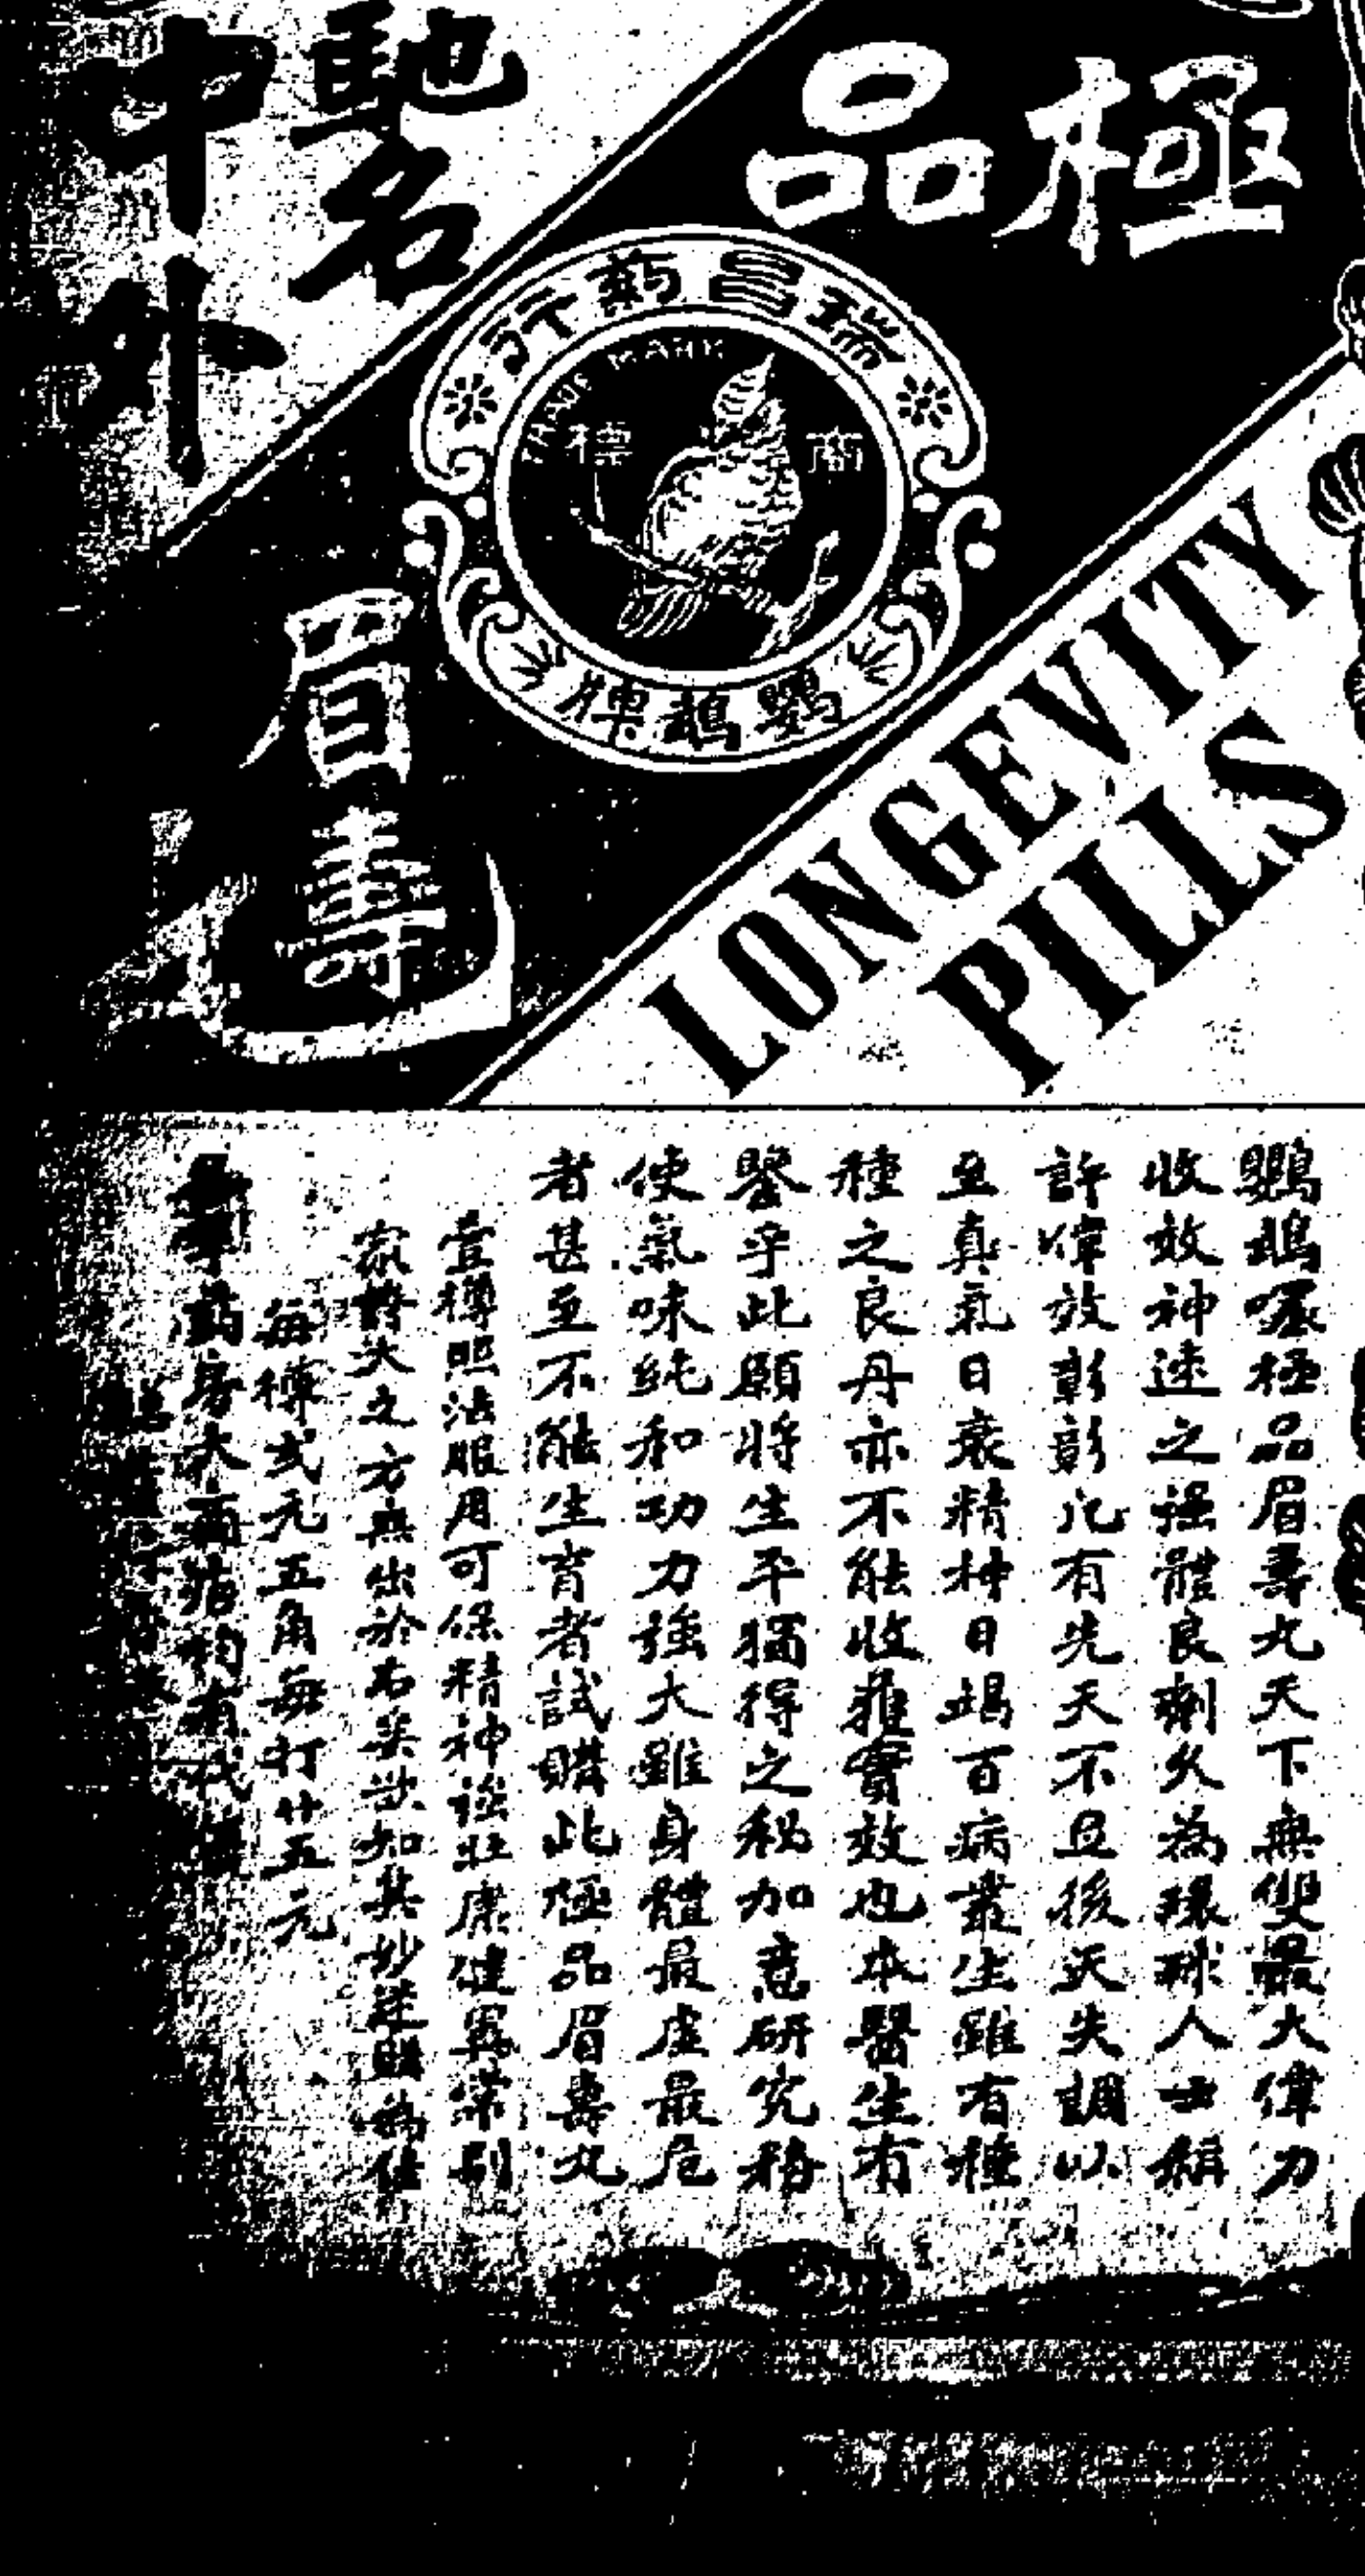 馳名
中外
極品
瑞昌葯行
TRADE MARK
商標
鸚鵡牌
眉壽
LONGEVITY
PILLS
鸚鵡嘜極品眉壽丸天下無雙最大偉力
收效神速之强體良劑久為環球人士稱
許偉效彰彰凡有先天不足後天失調以
至真氣日衰精神日竭百病叢生雖有種
種之良丹亦不能收雅實效也本醫生有
鑒乎此願將生平獨得之秘加意研究務
使氣味純和功力強大雖身體最虛最危
者甚至不能生育者試購此極品眉壽丸
壹樽照法服用可保精神強壯康健異常別
家特失之方無出於右矣欲知其妙速購為佳
每樽弍元五角每打廿五元
葯房大商店均有代